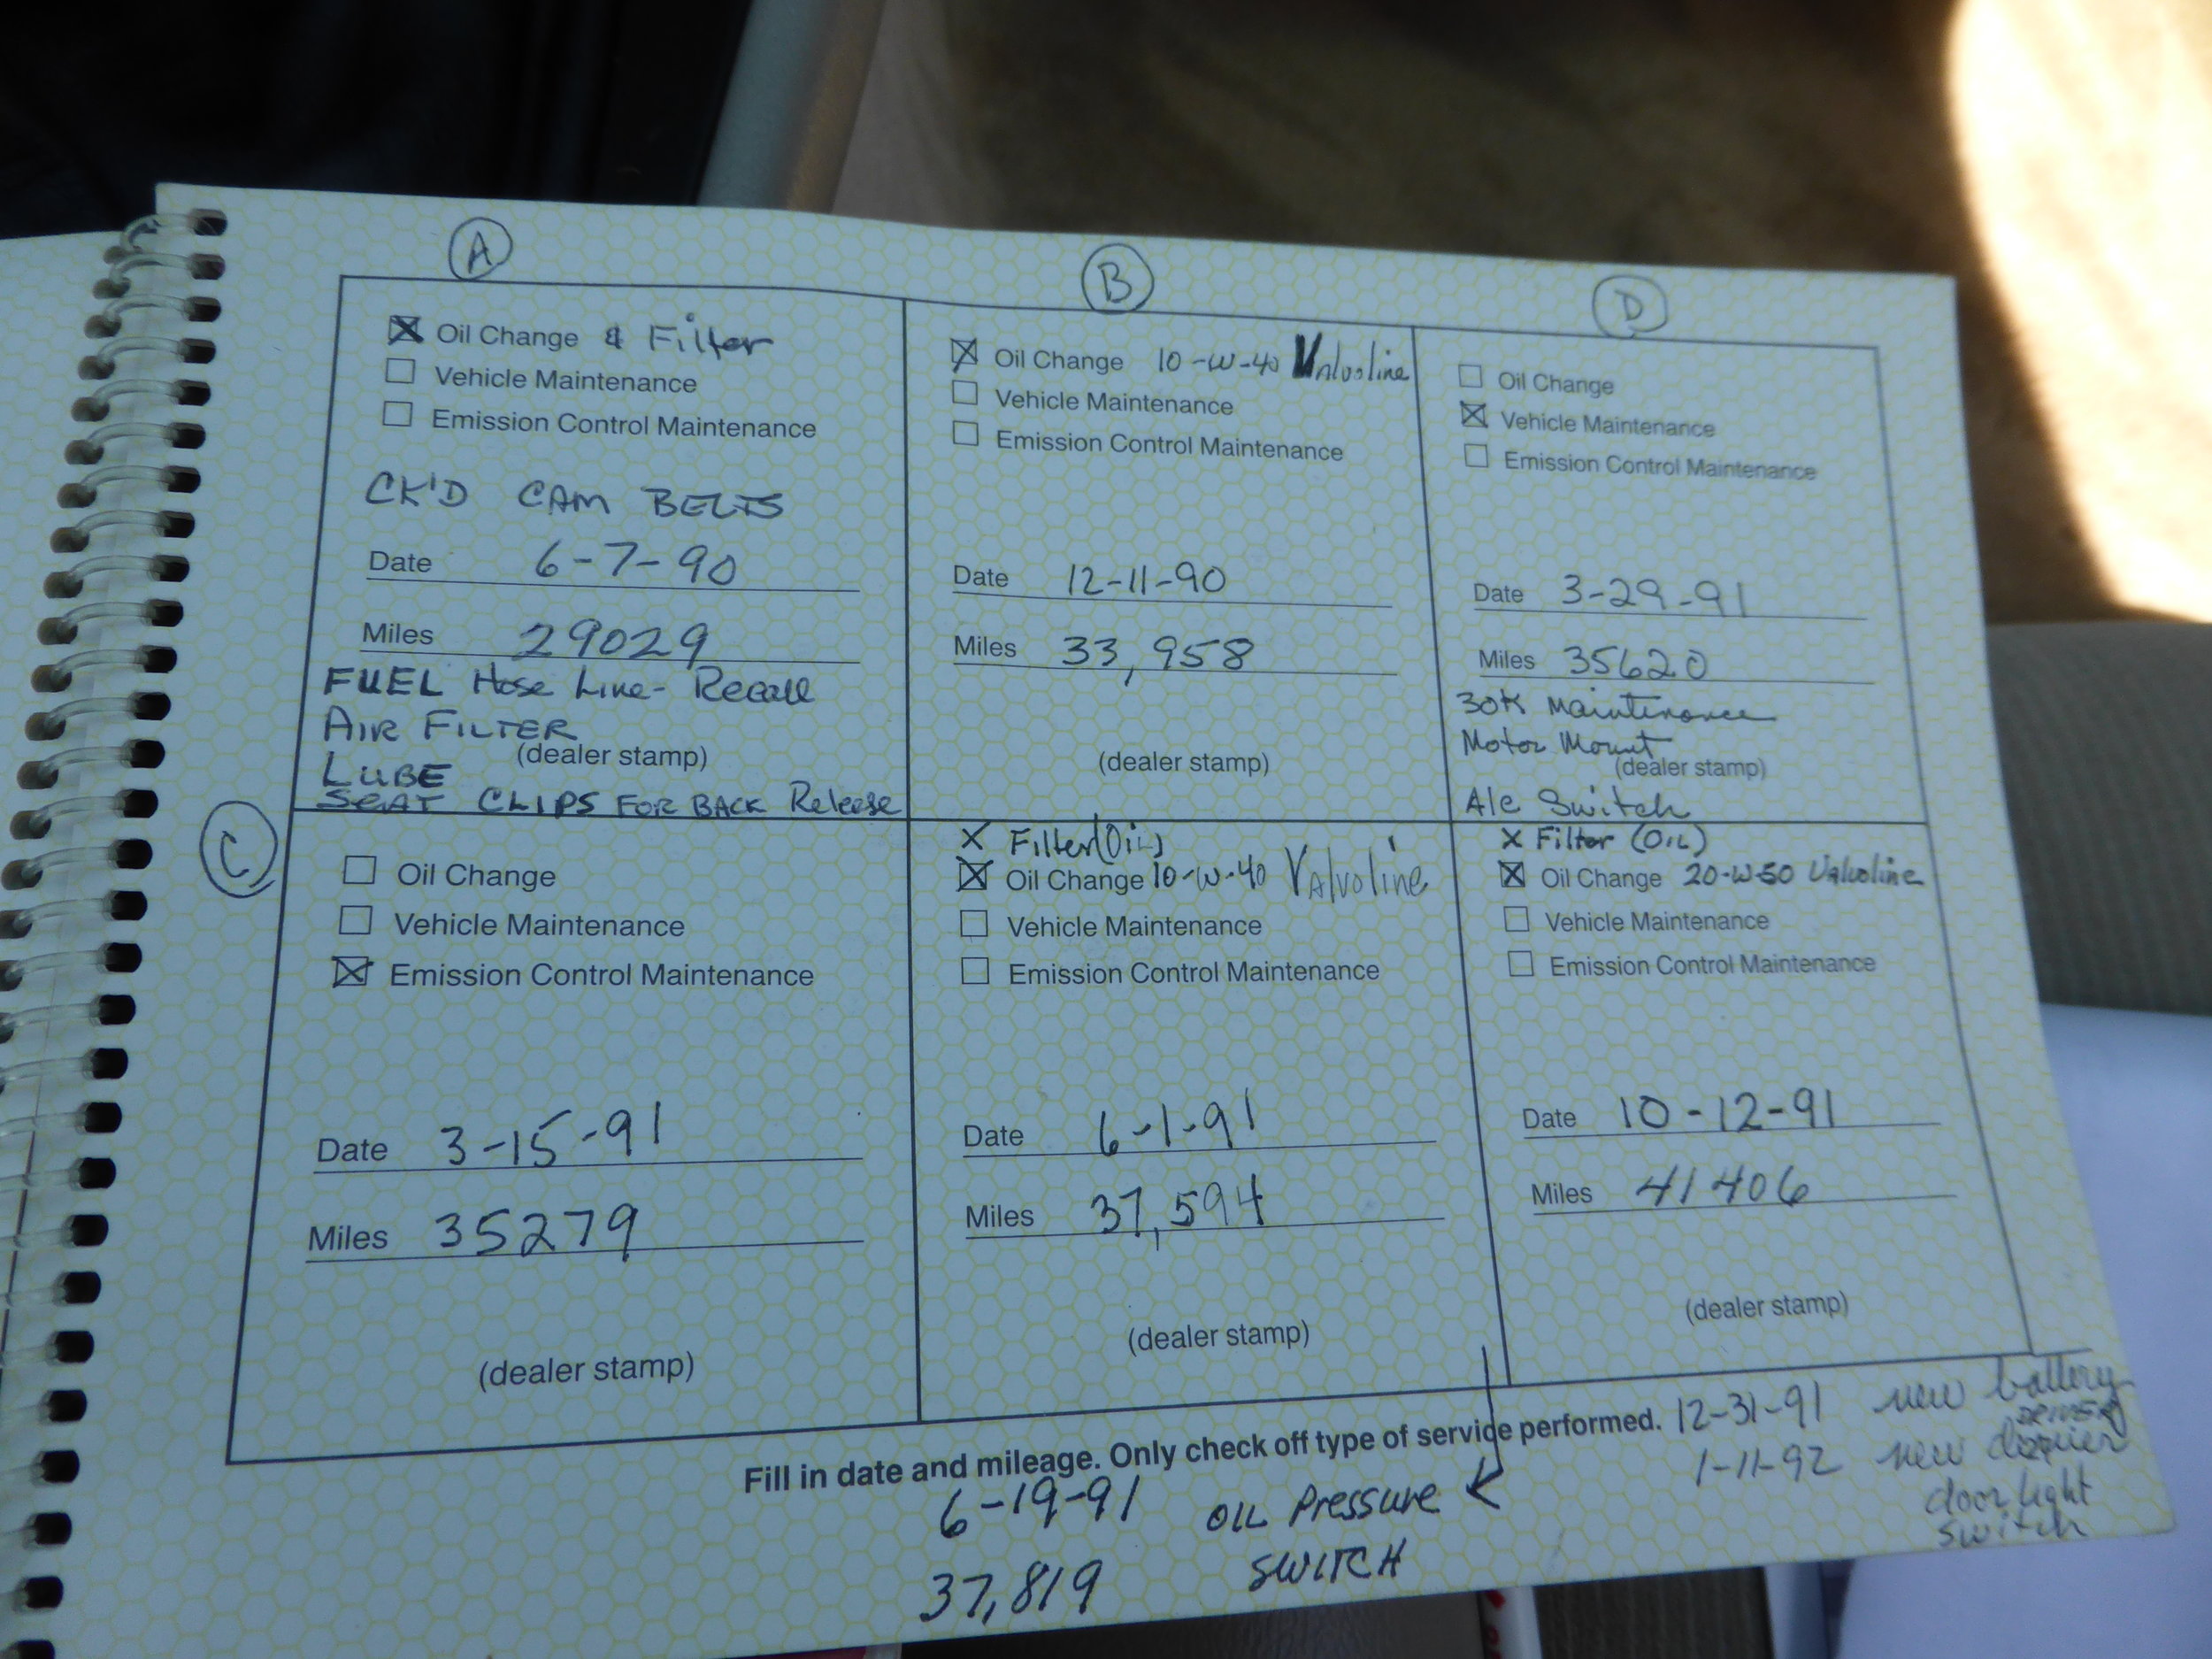 A
☒ Oil Change & Filter
☐ Vehicle Maintenance
☐ Emission Control Maintenance
CK'D CAM BELTS
Date 6-7-90
Miles 29029
FUEL Hose Line - Recall
AIR FILTER
(dealer stamp)
LUBE
SEAT CLIPS FOR BACK Release
B
☒ Oil Change 10-W-40 Valvoline
☐ Vehicle Maintenance
☐ Emission Control Maintenance
Date 12-11-90
Miles 33,958
(dealer stamp)
D
☐ Oil Change
☒ Vehicle Maintenance
☐ Emission Control Maintenance
Date 3-29-91
Miles 35620
30K Maintenance
Motor Mount
(dealer stamp)
A/c Switch
C
☐ Oil Change
☐ Vehicle Maintenance
☒ Emission Control Maintenance
Date 3-15-91
Miles 35279
(dealer stamp)
X Filter (OIL)
☒ Oil Change 10-W-40 VAlvoline
☐ Vehicle Maintenance
☐ Emission Control Maintenance
Date 6-1-91
Miles 37,594
(dealer stamp)
X Filter (OIL)
☒ Oil Change 20-W-50 Valvoline
☐ Vehicle Maintenance
☐ Emission Control Maintenance
Date 10-12-91
Miles 41406
(dealer stamp)
Fill in date and mileage. Only check off type of service performed.
6-19-91 OIL Pressure
37,819 SWITCH
12-31-91 new battery
DRIVER
1-11-92 new
door light
switch